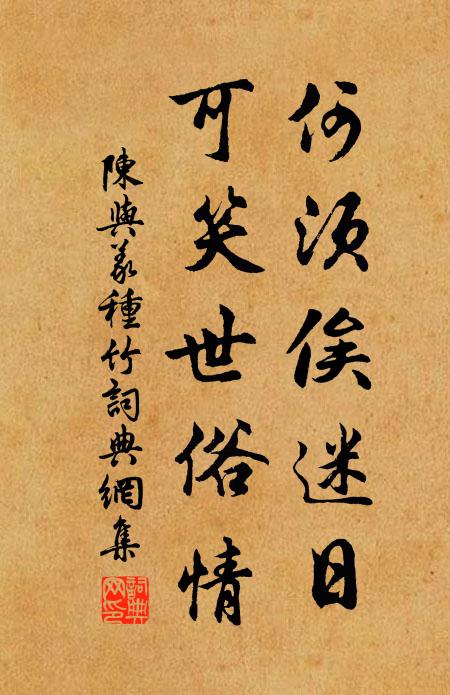 何須俟迷日
可笑世俗情
陳與義種竹詞典網集
詞典網印